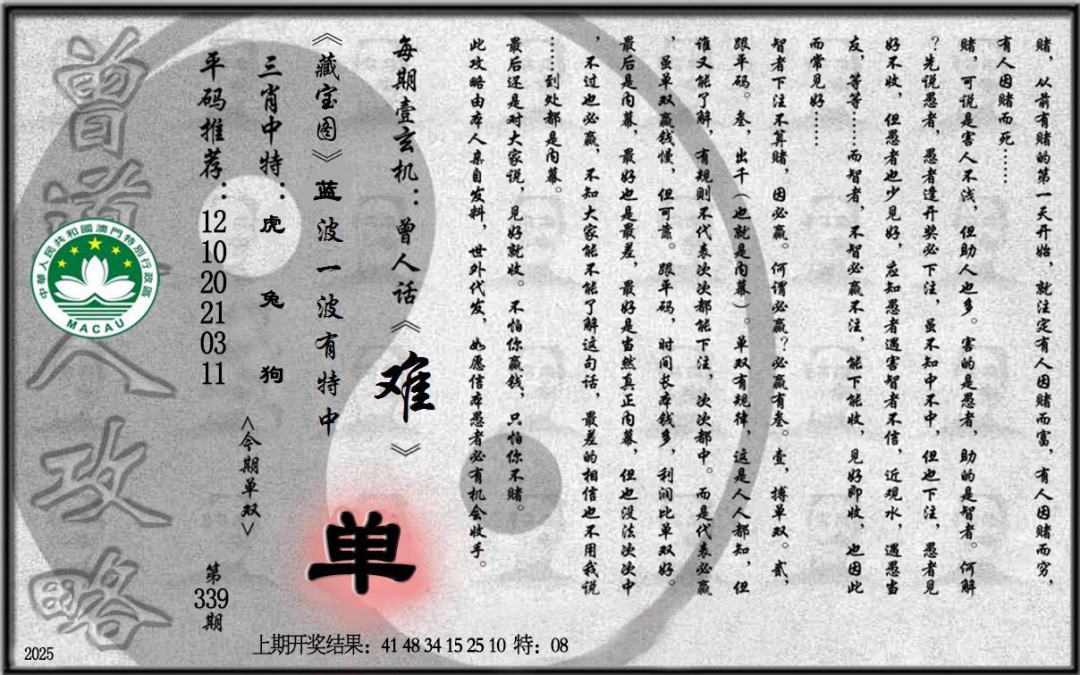 赌，从前有赌的第一天开始，就注定有人因赌而富，有人因赌而穷，
有人因赌而死……
赌，可说是害人不浅，但助人也多。害的是愚者，助的是智者。何解
？先说愚者，愚者逢开奖必下注，虽不知中不中，但也下注，愚者见
好不收，但愚者也少见好，应知愚者遇害智者不信，近观水，遇愚当
友，等等……而智者，不智必赢不注，能下能收，见好即收，也因此
而常见好……
智者下注不算赌，因必赢。何谓必赢？必赢有叁。壹，搏单双。贰，
跟单码。叁，出千（也就是内幕）。单双有规律，这是人人都知，但
谁又能了解，有规则不代表次次都能下注，次次都中。而是代表必赢
，虽单双赢钱慢，但可靠。跟单码，时间长本钱多，利润比单双好。
最后是内幕，最好也是最差，最好是当然真正内幕，但也没法次次中
，不过也必赢，不知大家能不能了解这句话，最差的相信也不用我说
……到处都是内幕。
最后还是对大家说，见好就收。不怕你赢钱，只怕你不赌。
此攻略由本人亲自发料，世外代发，如愿信本愚者必有机会收手。
每期壹玄机：曾人话《难》
《藏宝图》蓝波一波有特中
单
三肖中特：虎 兔 狗
<今期单双>
平码推荐：12 10 20 21 03 11
第339期
曾道人攻略
中華人民共和國澳門特別行政區
MACAU
上期开奖结果：41 48 34 15 25 10 特：08
2025